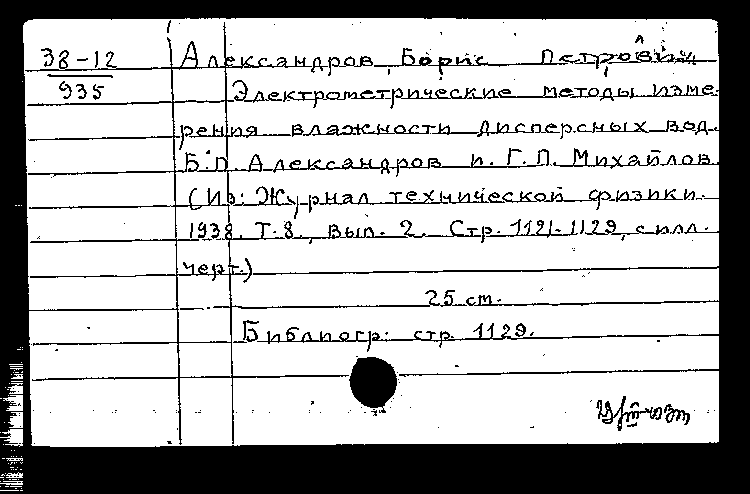 38-12
935
Александров, Борис Петрович
Электрометрические методы изме-
рения влажности дисперсных вод.
Б.П. Александров и. Г.П. Михайлов
(Из: Журнал технической физики.
1938. Т.8., Вып. 2. Стр. 1121-1129, с илл.
черт.)
25 ст.
Библиогр: стр. 1129.